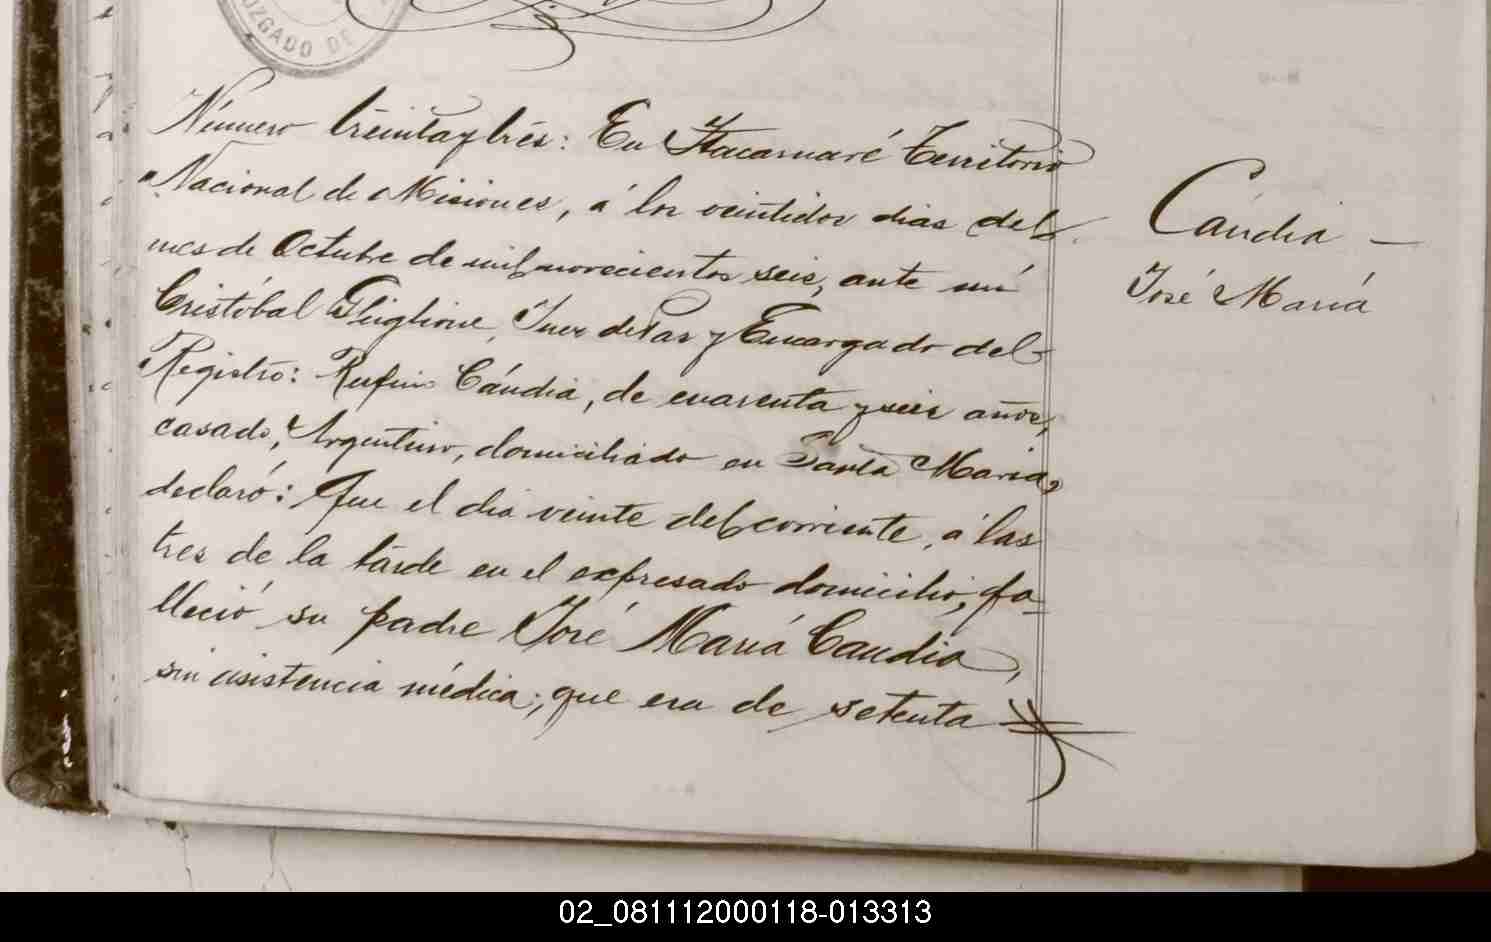 JUZGADO DE
Número treinta y tres: En Itacaruaré Territorio
Nacional de Misiones, á los veintidos dias del
mes de Octubre de mil novecientos seis, ante mí
Cristóbal Juez de Paz y Encargado del
Registro: Rufino Cándia, de cuarenta y seis años,
casado, Argentino, domiciliado en Santa Maria,
declaró: Que el dia veinte del corriente, á las
tres de la tarde en el expresado domicilio, fa-
lleció su padre José Maria Candia,
sin asistencia médica; que era de setenta
Cándia —
José Maria
02_081112000118-013313